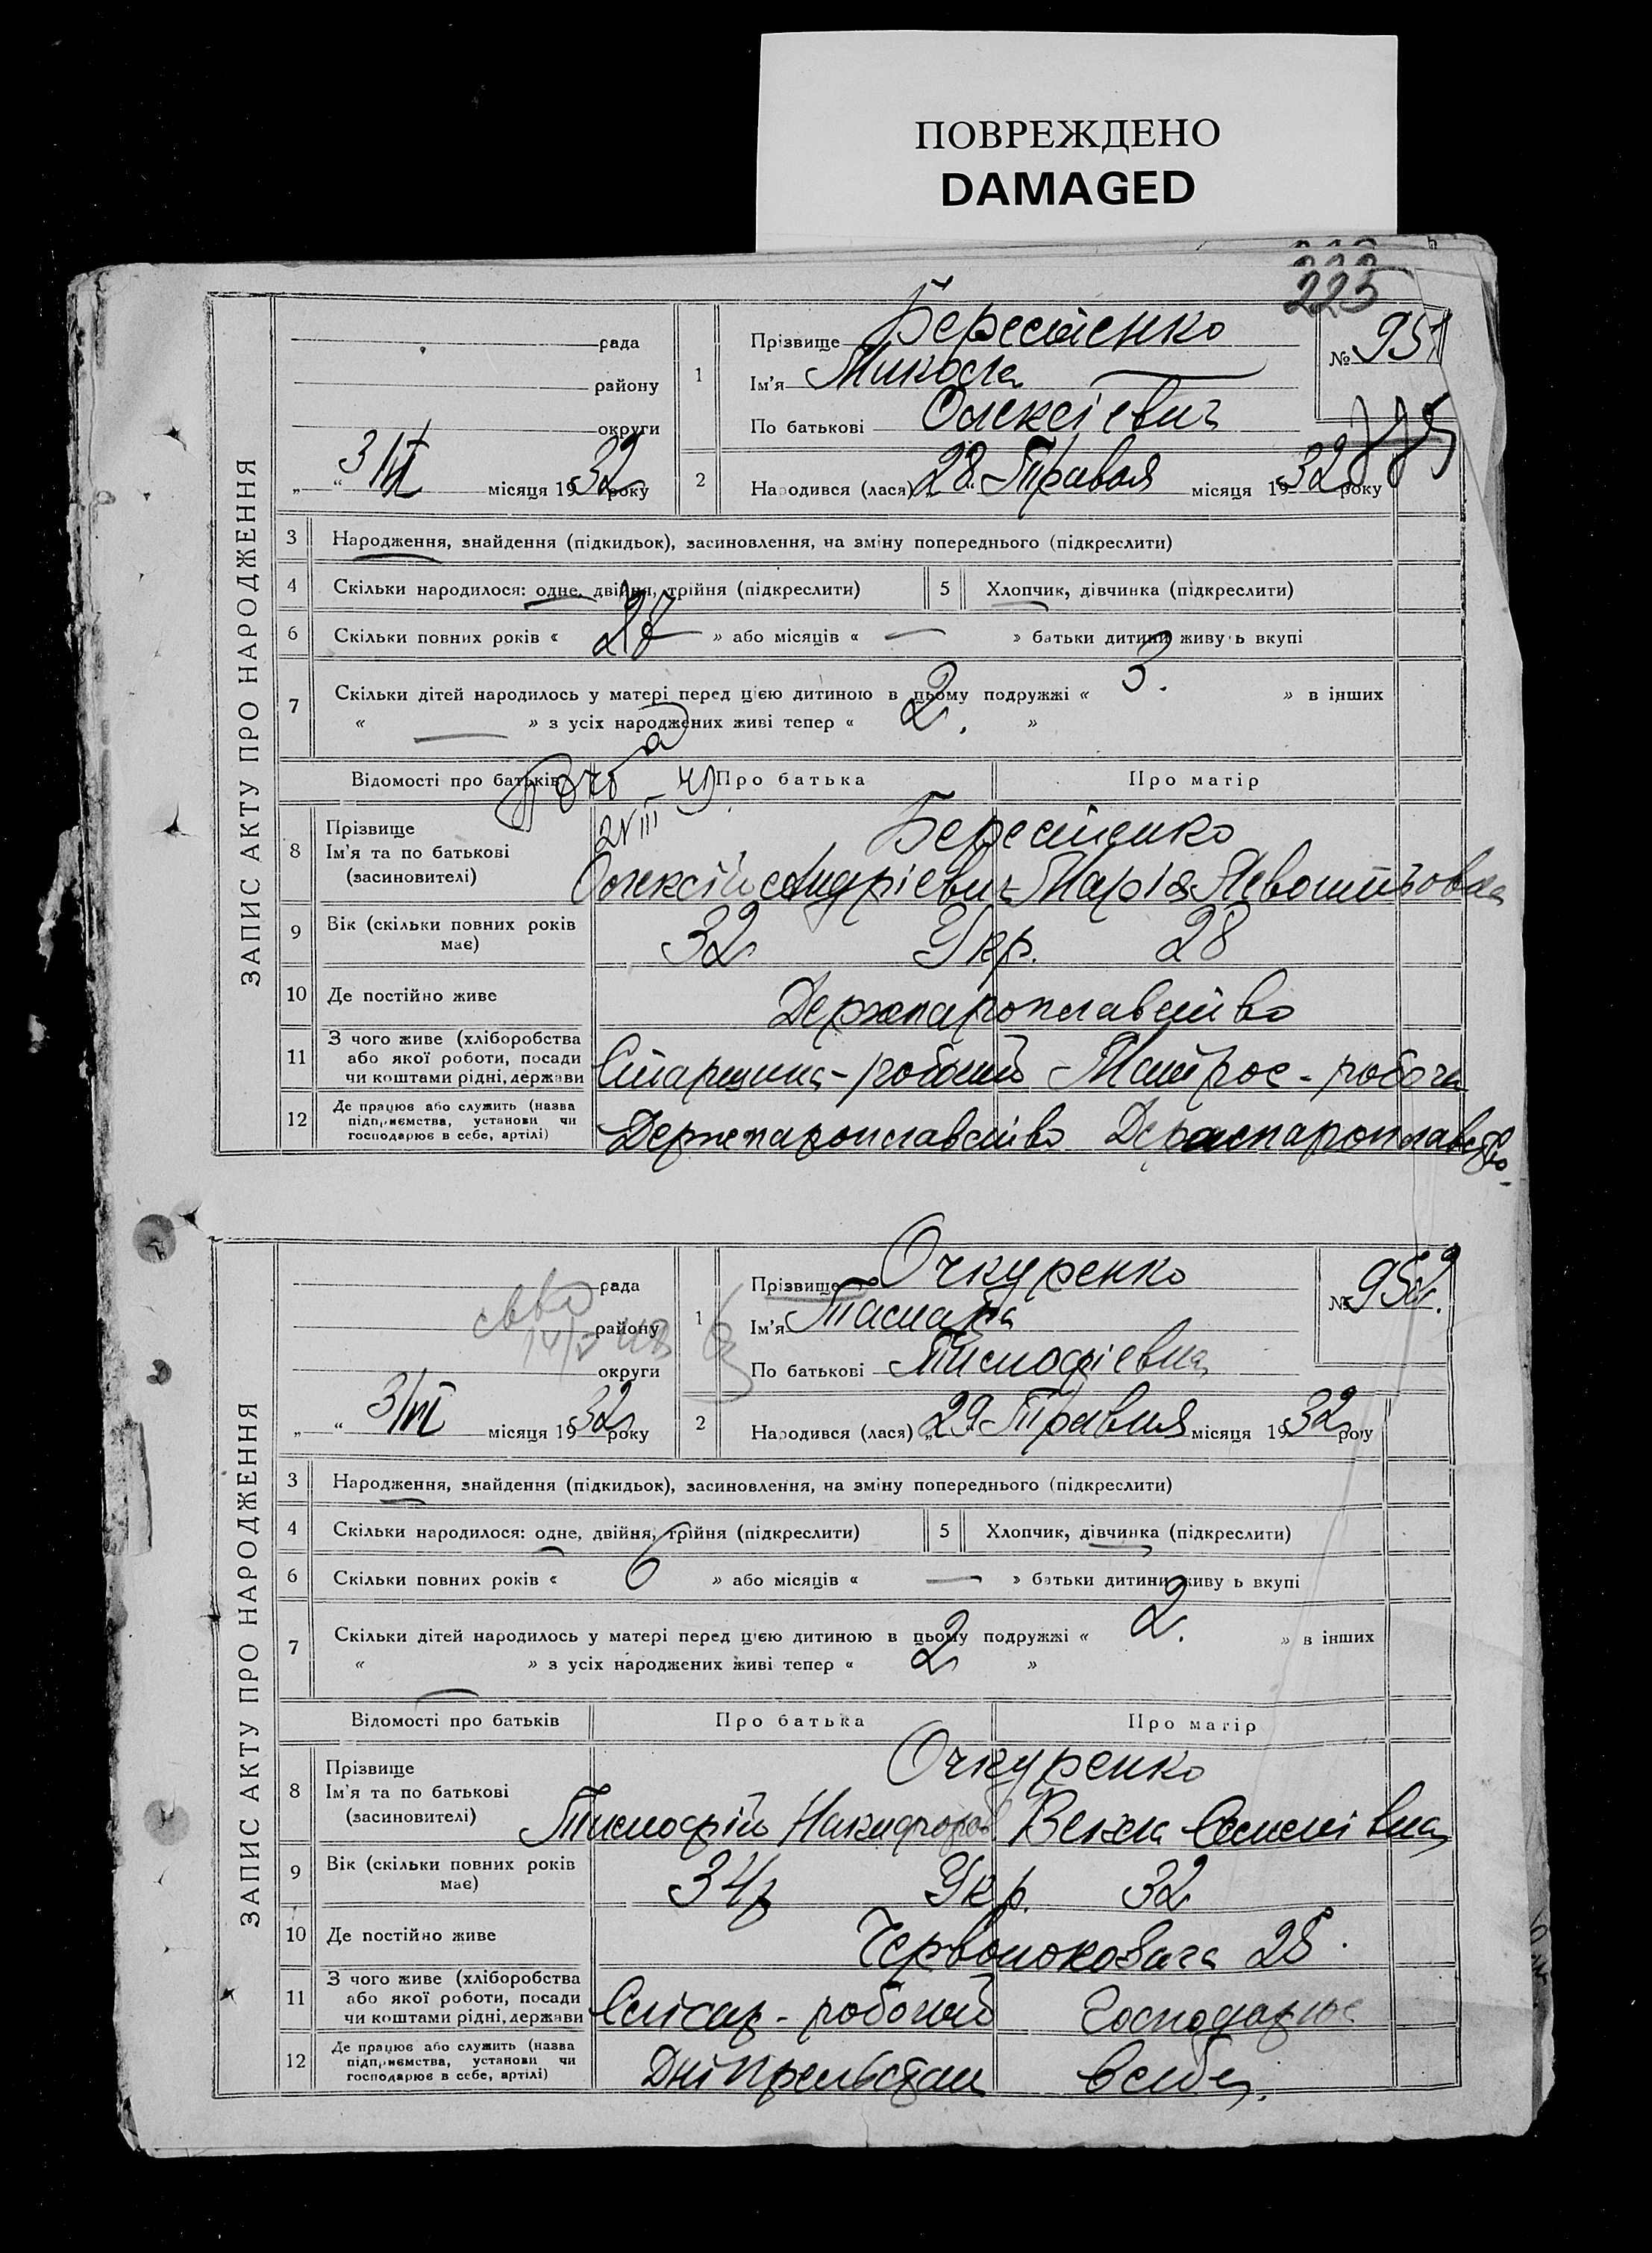 ПОВРЕЖДЕНО
DAMAGED
223
ЗАПИС АКТУ ПРО НАРОДЖЕННЯ
рада
району
округи
3/VI місяця 1932 року
1
Прізвище Берестенко
Ім'я Микола
По батькові Олексієвич
№ 951
2
Народився (лася) „28 Травня місяця 1932 року
3 Народження, знайдення (підкидьок), засиновлення, на зміну попереднього (підкреслити)
4 Скільки народилося: одне, двійня, трійня (підкреслити) 5 Хлопчик, дівчинка (підкреслити)
6 Скільки повних років « » або місяців « — » батьки дитини живуь вкупі
7 Скільки дітей народилось у матері перед цією дитиною в цьому подружжі « 3. » в інших
« — » з усіх народжених живі тепер « 2. »
Відомості про батьків Про батька Про матір
8 Прізвище
Ім'я та по батькові
(засиновителі)
Берестенко
Олексій Андрієвич Марія
9 Вік (скільки повних років має) 32 Укр. 28
10 Де постійно живе Держпароплавство
11 З чого живе (хліборобства
або якої роботи, посади
чи коштами рідні, держави
Старшина - робочий Матрос - робоча
12 Де працює або служить (назва
підприємства, установи чи
господарює в себе, артілі)
Держпароплавство Держпароплавство
ЗАПИС АКТУ ПРО НАРОДЖЕННЯ
рада
району
округи
3/VI місяця 1932 року
1
Прізвище Очкуренко
Ім'я Тамара
По батькові Тимофієвна
№ 952.
2
Народився (лася) „29 Травня місяця 1932 року
3 Народження, знайдення (підкидьок), засиновлення, на зміну попереднього (підкреслити)
4 Скільки народилося: одне, двійня, трійня (підкреслити) 5 Хлопчик, дівчинка (підкреслити)
6 Скільки повних років « 6 » або місяців « — » батьки дитини живу ь вкупі
7 Скільки дітей народилось у матері перед цією дитиною в цьому подружжі « 2. » в інших
« — » з усіх народжених живі тепер « 2 »
Відомості про батьків Про батька Про матір
8 Прізвище
Ім'я та по батькові
(засиновителі)
Очкуренко
Тимофій Никифоров Векла Семенівна
9 Вік (скільки повних років має) 34 Укр. 32
10 Де постійно живе Червонокозача 28.
11 З чого живе (хліборобства
або якої роботи, посади
чи коштами рідні, держави
Слісар - робочий Господарює
12 Де працює або служить (назва
підприємства, установи чи
господарює в себе, артілі)
Дніпрельстан в себе.